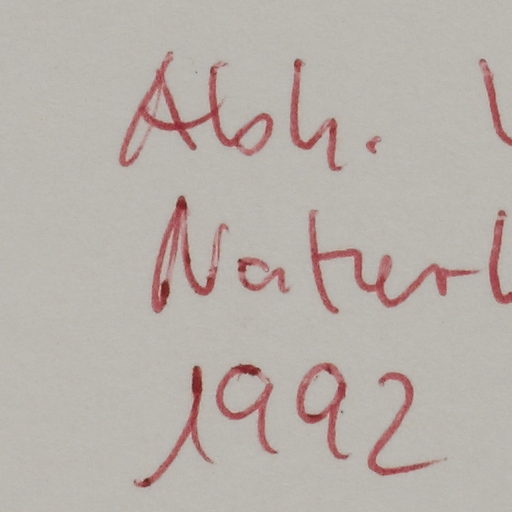 Abh.
Natur
1992